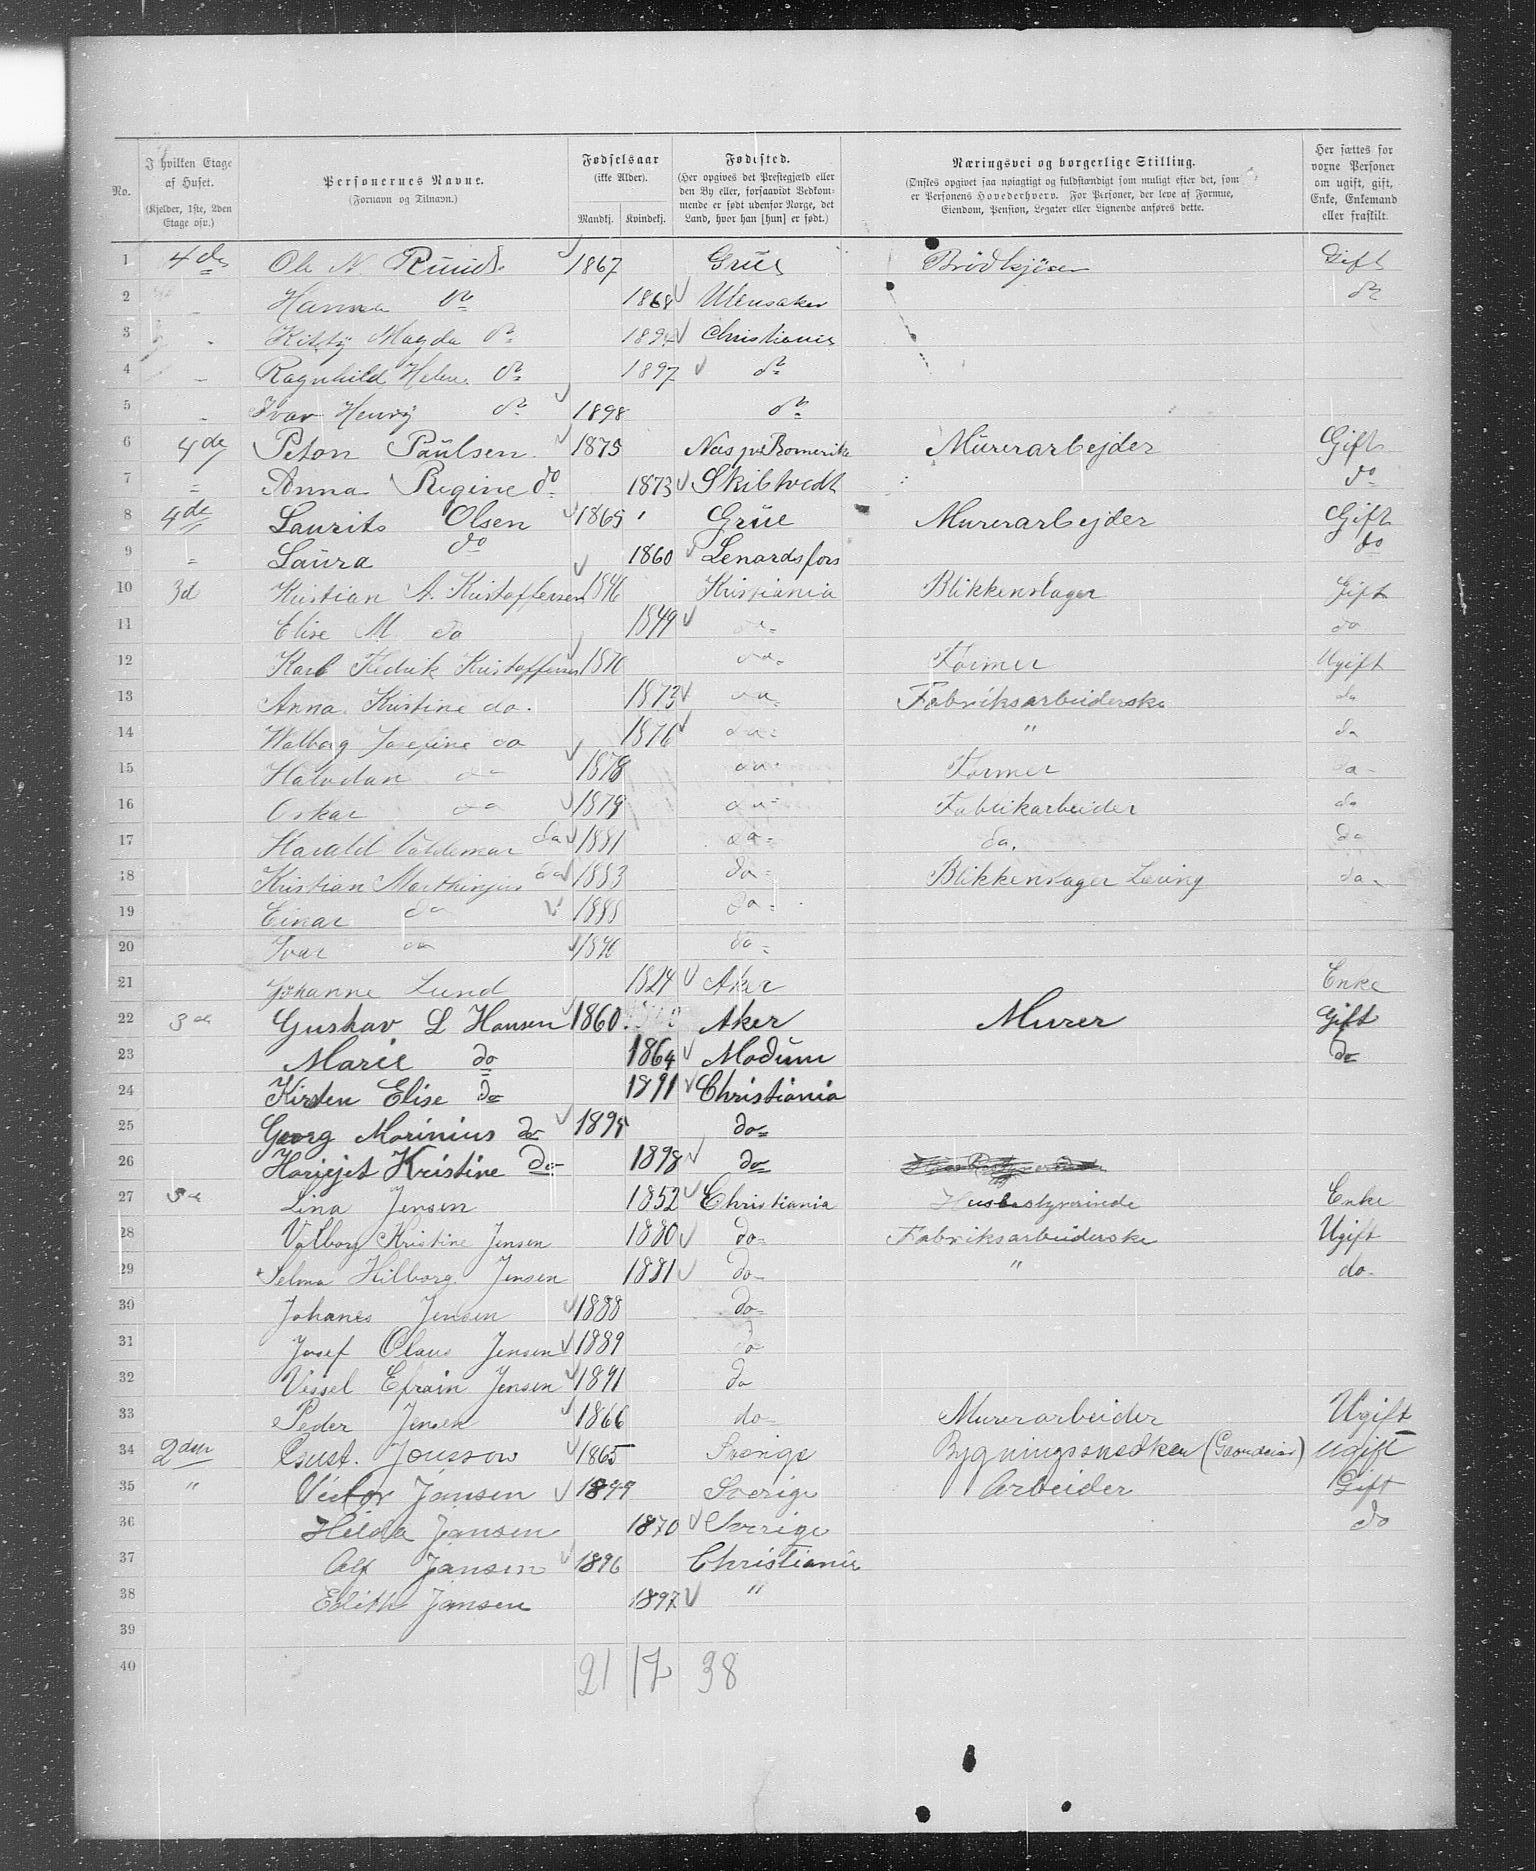 No.
I hvilken Etage af Huset. (Kjelder, 1ste, 2den Etage osv.)
Personernes Navne. (Fornavn og Tilnavn.)
Fødselsaar (ikke Alder). Mandkj. Kvindekj.
Fødested. (Her opgives det Prestegjæld eller den By eller, forsaavidt Vedkommende er født udenfor Norge, det Land, hvor han [hun] er født.)
Næringsvei og borgerlige Stilling. (Ønskes opgivet saa nøiagtigt og fuldstændigt som muligt efter det, som er Personens Hovederhverv. For Personer, der leve af Formue, Eiendom, Pension, Legater eller Lignende anføres dette.
Her sættes for voxne Personer om ugift, gift, Enke, Enkemand eller fraskilt.
1 4de Ole N Ruud 1867 Grue Brödkjörer Gift
2 Hanna do 1868 Ulensaker do
3 Kitty Magda do 1894 Christiania
4 Ragnhild Helen do 1897 do
5 Ivar Henry do 1898 do
6 4de Peton Paulsen 1875 Nas på Romerike Murerarbejder Gift
7 " Anna Regine do 1873 Skibtvedt do
8 4de Laurits Olsen 1865 Grue Murerarbejder Gift
9 " Laura do 1860 Lenardsfors do
10 3d Kristian A. Kristoffersen 1846 Kristiania Blikkenslager Gift
11 Elise M do 1849 do do
12 Karl Fredrik Kristoffersen 1870 do Former Ugift
13 Anna Kristine do. 1873 do Fabriksarbeiderske do
14 Walborg Josefine do 1876 do " do
15 Halvdan do 1878 do Former do
16 Oskar do 1879 do Fabrikarbeider do
17 Harald Valdemar do 1881 do do. do
18 Kristian Marthinjus do 1883 do Blikkenslager Læring do
19 Einar do 1888 do
20 Ivar do 1890 do
21 Johanne Lund 1824 Aker Enke
22 3de Gustav L Hansen 1860 Aker Murer Gift
23 Marie do 1864 Modum do
24 Kirsten Elise do 1891 Christiania
25 Georg Marinius do 1895 do
26 Hariejet Kristine do 1898 do
27 3de Lina Jensen 1852 Christiania Husbestyrerinde Enke
28 Valborg Kristine Jensen 1880 do Fabriksarbeiderske Ugift
29 Selma Hilborg Jensen 1881 do " do
30 Johanes Jensen 1888 do
31 Josef Claus Jensen 1889 do
32 Vessel Efraim Jensen 1891 do
33 Peder Jensen 1866 do Murerarbeider Ugift
34 2den Gust. Jonsson 1865 Sverige Bygningssnedker ugift
35 " Victor Jansen Sverige Arbeider Gift
36 Hilda Jansen 1870 Sverige do
37 Alf Jansen 1896 Christiania
38 Edith Jansen 1897 "
39
40 21 17 38